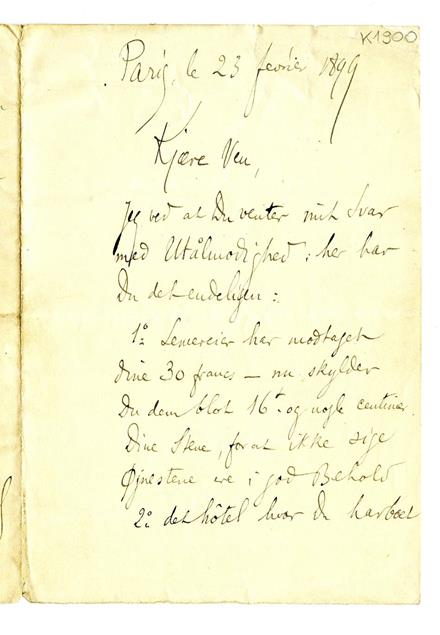 K1900
Paris, le 23 février 1899
Kjære Ven,
Jeg ved at Du venter mit Svar
med Utålmodighed : her har
Du det endeligen :
1º Lemercier har modtaget
dine 30 francs – nu skylder
Du dem blot 16 f. og nogle centimer.
Dine Stene, for at ikke sige
Øjnestene ere i god Behold
2º det hôtel hvor Du har boet